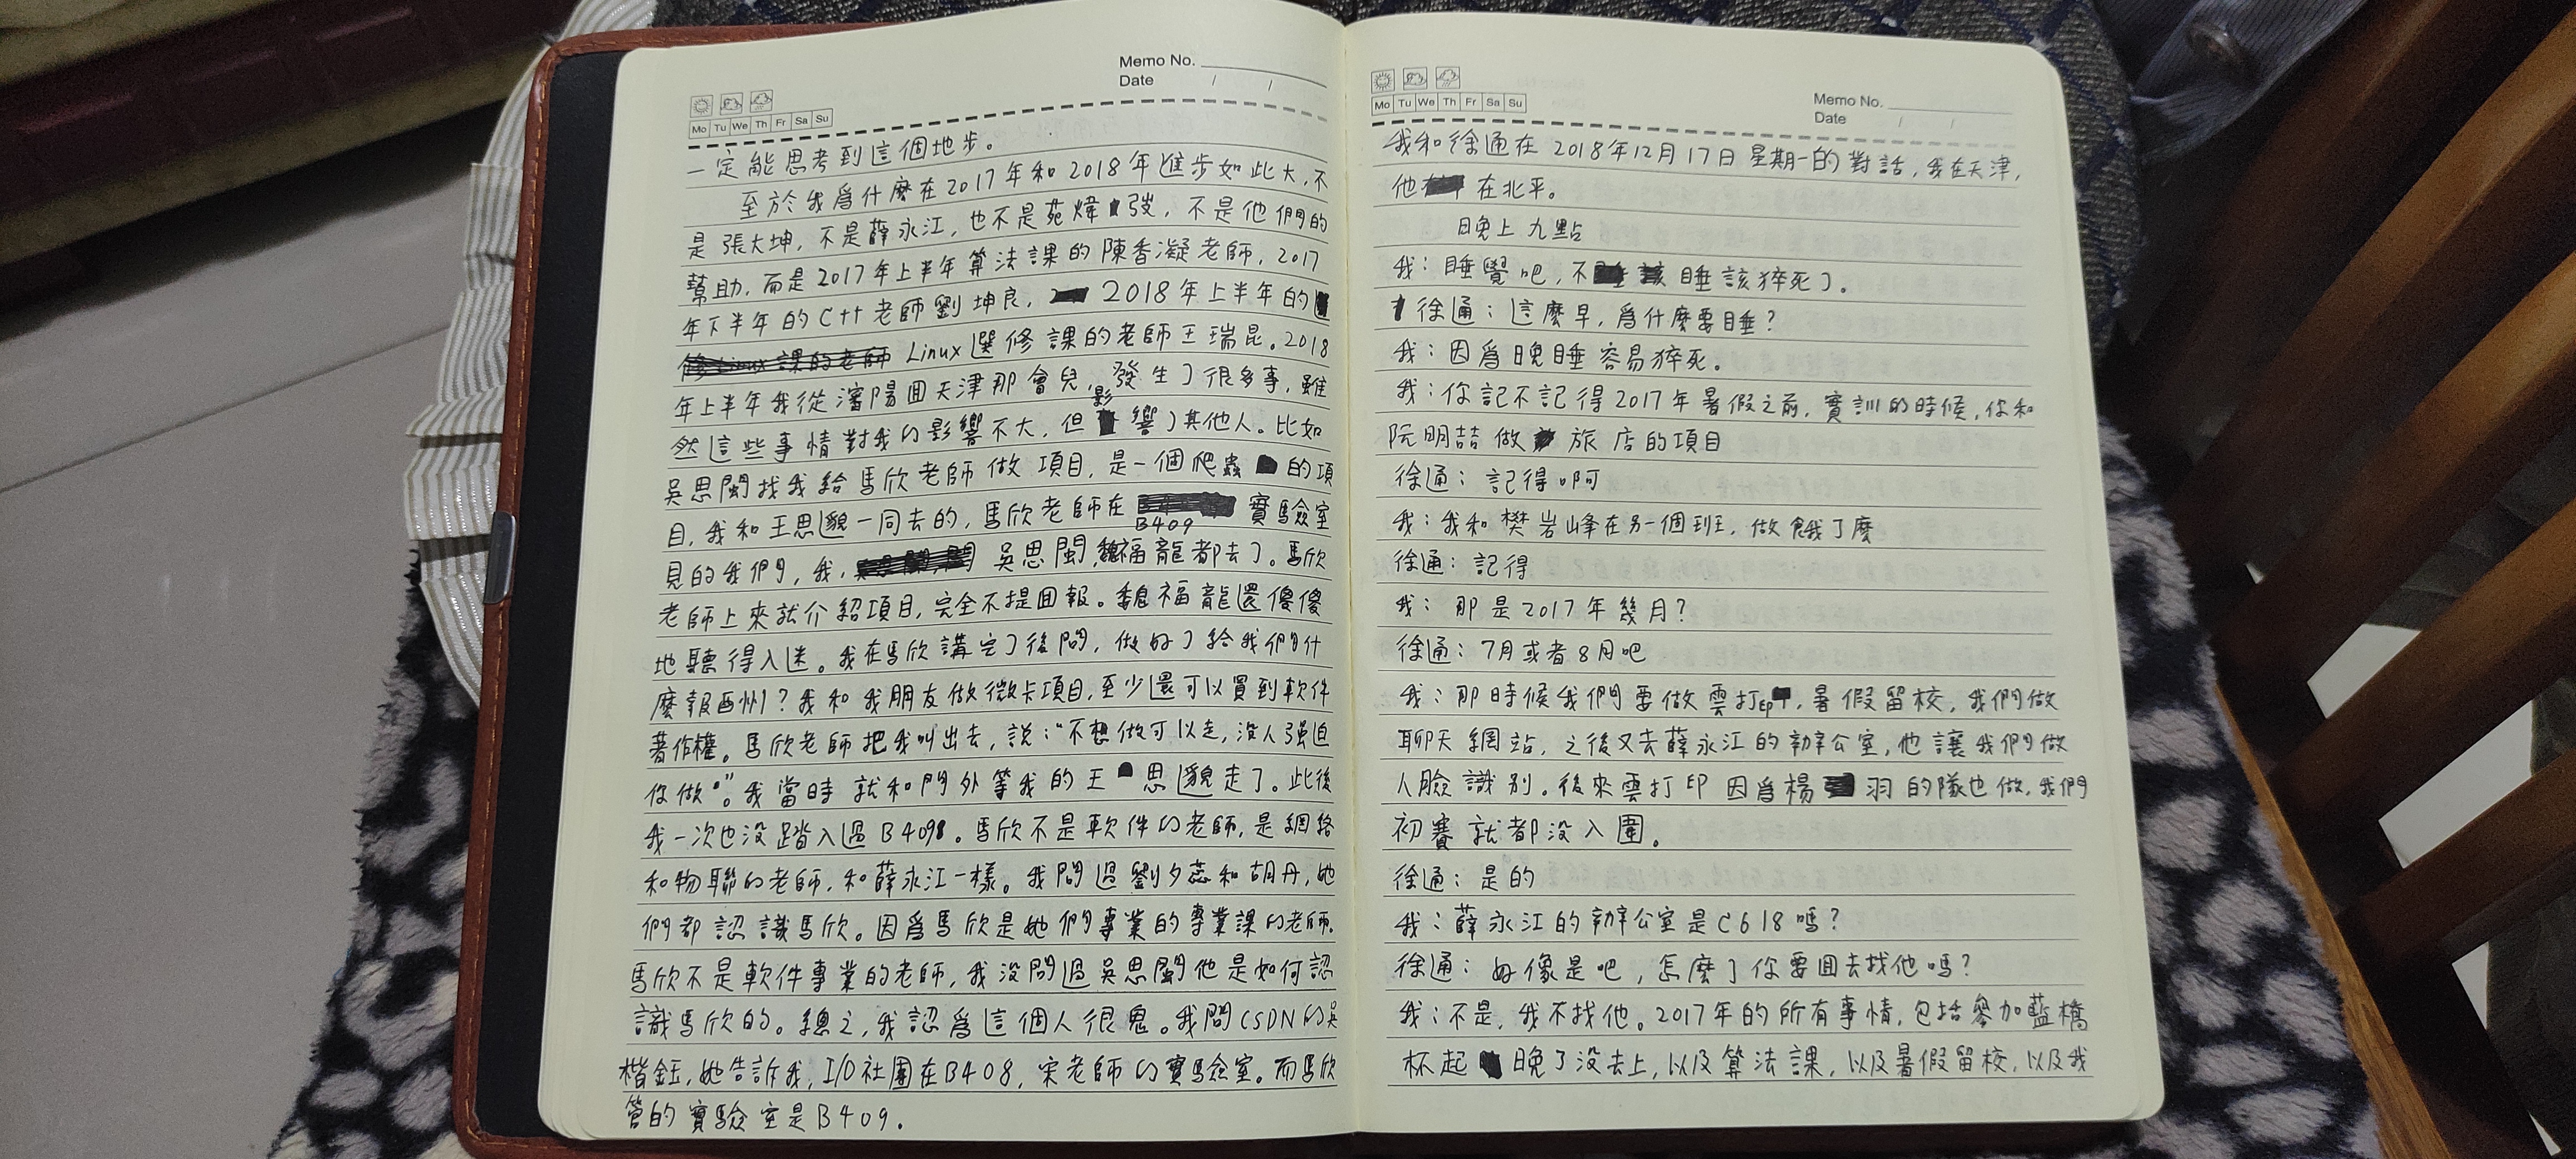 Memo No.
Date / /
Mo Tu We Th Fr Sa Su
一定能思考到這個地步。
至於我爲什麼在2017年和2018年進步如此大,不
是張大坤,不是薛永江,也不是苑煒弢,不是他們的
幫助,而是2017年上半年算法課的陳香凝老師,2017
年下半年的C++老師劉坤良,2018年上半年的
Linux選修課的老師王瑞昆。2018
年上半年我從瀋陽回天津那會兒,發生了很多事,雖
然這些事情對我的影響不大,但影響了其他人。比如
吳思閩找我給馬欣老師做項目,是一個爬蟲的項
目,我和王思邈一同去的,馬欣老師在B409實驗室
見的我們,我,吳思閩,魏福龍都去了。馬欣
老師上來就介紹項目,完全不提回報。魏福龍還傻傻
地聽得入迷。我在馬欣講完了後問,做好了給我們什
麼報酬?我和我朋友做微卡項目,至少還可以買到軟件
著作權。馬欣老師把我叫出去,説:"不想做可以走,没人强迫
你做"。我當時就和門外等我的王思邈走了。此後
我一次也没踏入過B409。馬欣不是軟件的老師,是網絡
和物聯的老師,和薛永江一樣。我問過劉夕蕊和胡丹,她
們都認識馬欣。因爲馬欣是她們專業的專業課的老師.
馬欣不是軟件專業的老師,我没問過吳思閩他是如何認
識馬欣的。總之,我認爲這個人很鬼。我問CSDN的吳
楷鈺,她告訴我,I/O社團在B408,宋老師的實驗室。而馬欣
管的實驗室是B409.
Memo No.
Date / /
Mo Tu We Th Fr Sa Su
我和徐通在2018年12月17日星期一的對話,我在天津,
他在北平。
晚上九點
我:睡覺吧,不睡該猝死了.
徐通:這麼早,爲什麼要睡?
我:因爲晚睡容易猝死。
我:你記不記得2017年暑假之前,實訓的時候,你和
阮明喆做旅店的項目
徐通:記得啊
我:我和樊岩峰在另一個班,做餓了麼
徐通:記得
我:那是2017年幾月?
徐通:7月或者8月吧
我:那時候我們要做雲打印,暑假留校,我們做
聊天網站,之後又去薛永江的辦公室,他讓我們做
人臉識别.後來雲打印因爲楊羽的隊也做,我們
初賽就都没入圍.
徐通:是的
我:薛永江的辦公室是C618嗎?
徐通:好像是吧,怎麼了你要回去找他嗎?
我:不是,我不找他。2017年的所有事情,包括參加藍橋
杯起晚了没去上,以及算法課,以及暑假留校,以及我